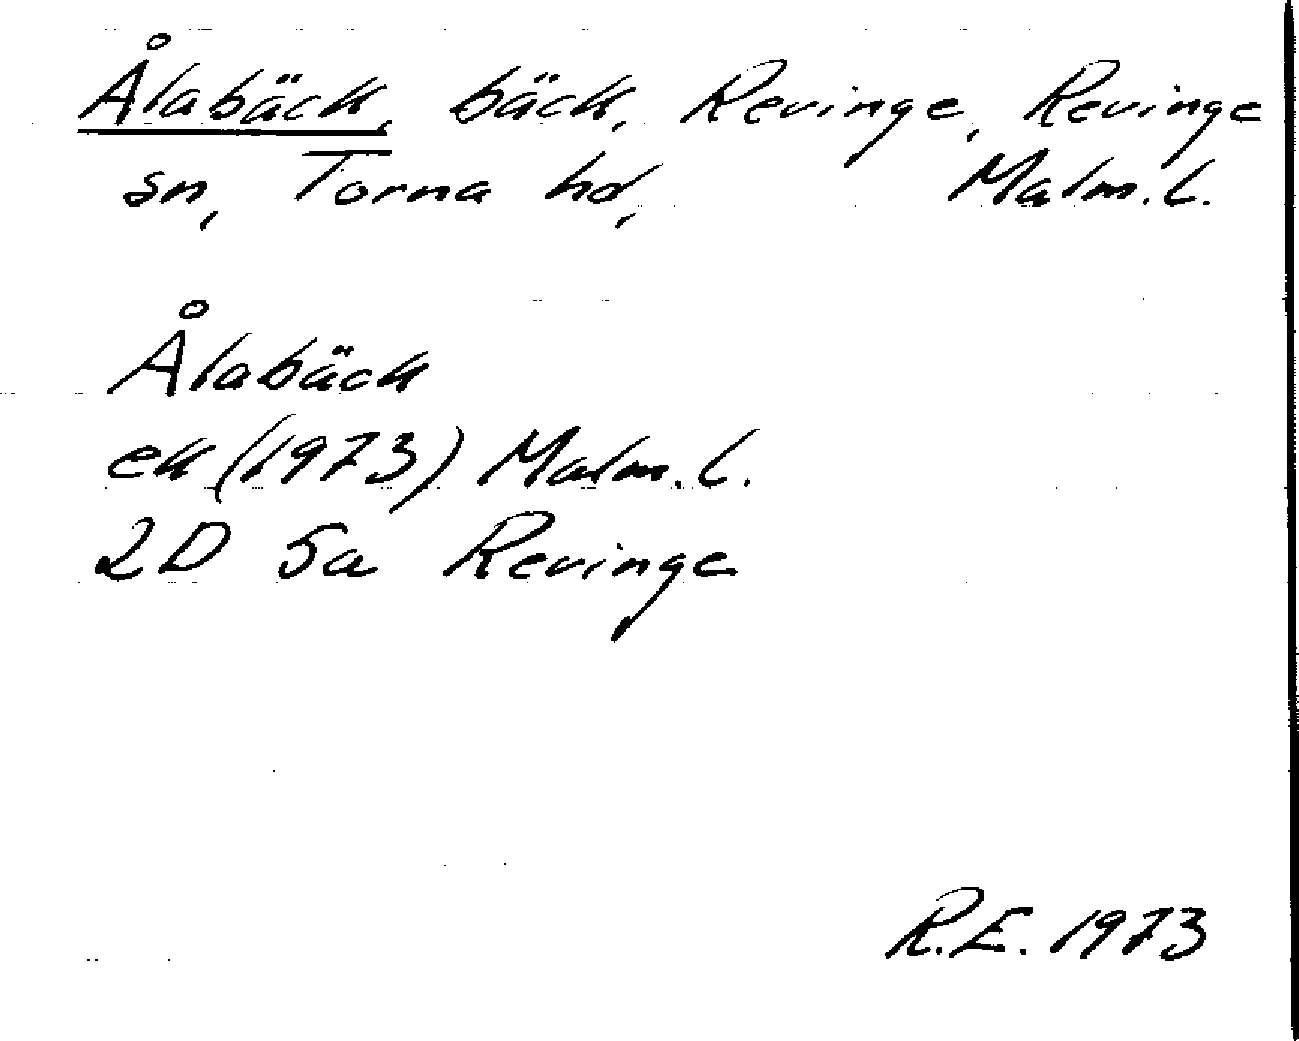 Ålabäck, bäck, Revinge, Revinge
sn, Torna hd, Malm. l.
Ålabäck
ek (1973) Malm. l.
2D 5a Revinge
R.E. 1973